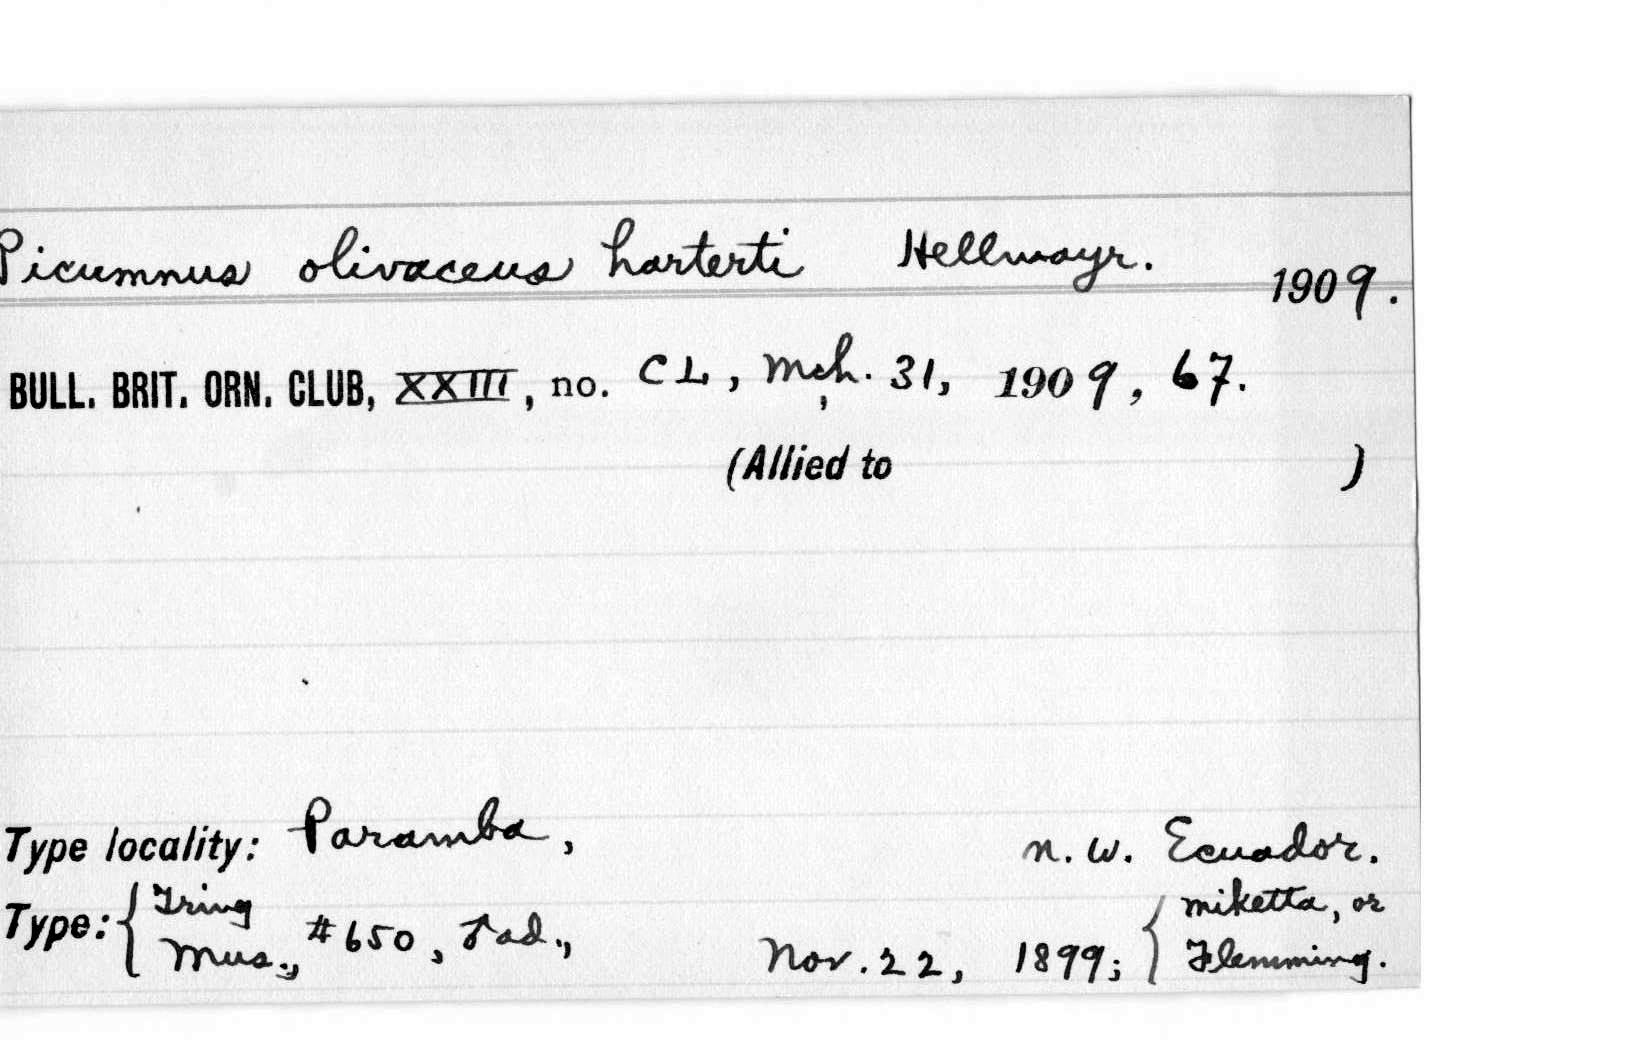 Picumnus olivaceus harterti Hellmayr. 1909.
BULL. BRIT. ORN. CLUB, XXIII, no. CL, Mch. 31, 1909, 67.
(Allied to )
Type locality: Paramba, n.w. Ecuador.
Type: { Tring Mus., #650, ♂ ad., Nov. 22, 1899; { Miketta, or Flemming.